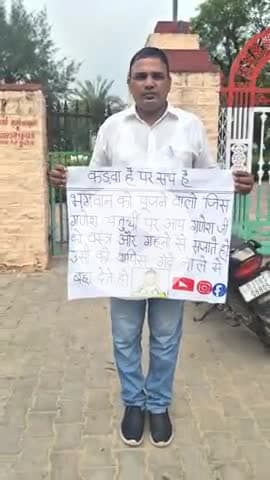 कड़वा है पर सच है
भगवान को पूजने वालो जिस
गणेश चतुर्थी पर आप गणेश जी
को वस्त्र और गहनो से सजाते हो
उसी को गंदे नाले मे
बहा देते हो